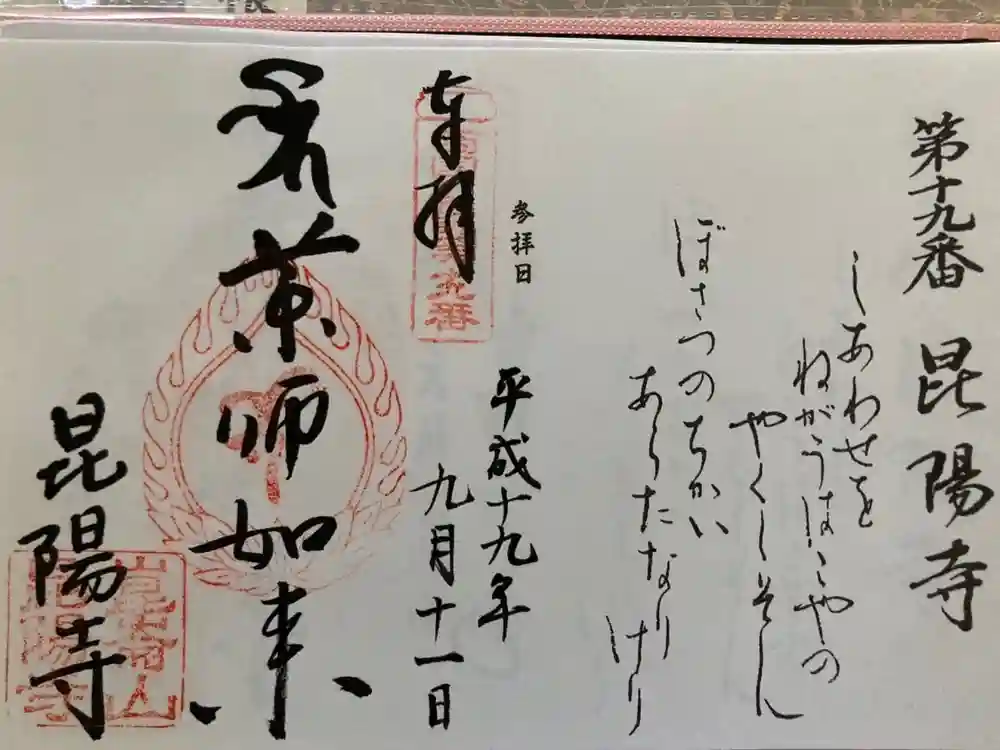 第十九番 昆陽寺
しあわせを
ねがうはこやの
やくしそん
ぼさつのちかい
あらたなりけり
参拝日
平成十九年
九月十一日
奉拝
薬師如来
昆陽寺